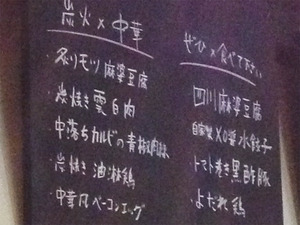 炭火×中華
炙りモツ麻婆豆腐
・炭焼き雲白肉
・中落ちカルビの青椒肉絲
・炭焼き油淋鶏
・中華風ベーコンエッグ
ぜひ×食べて下さい
・四川麻婆豆腐
・自家製XO醤水餃子
・トマト巻き黒酢豚
・よだれ鶏